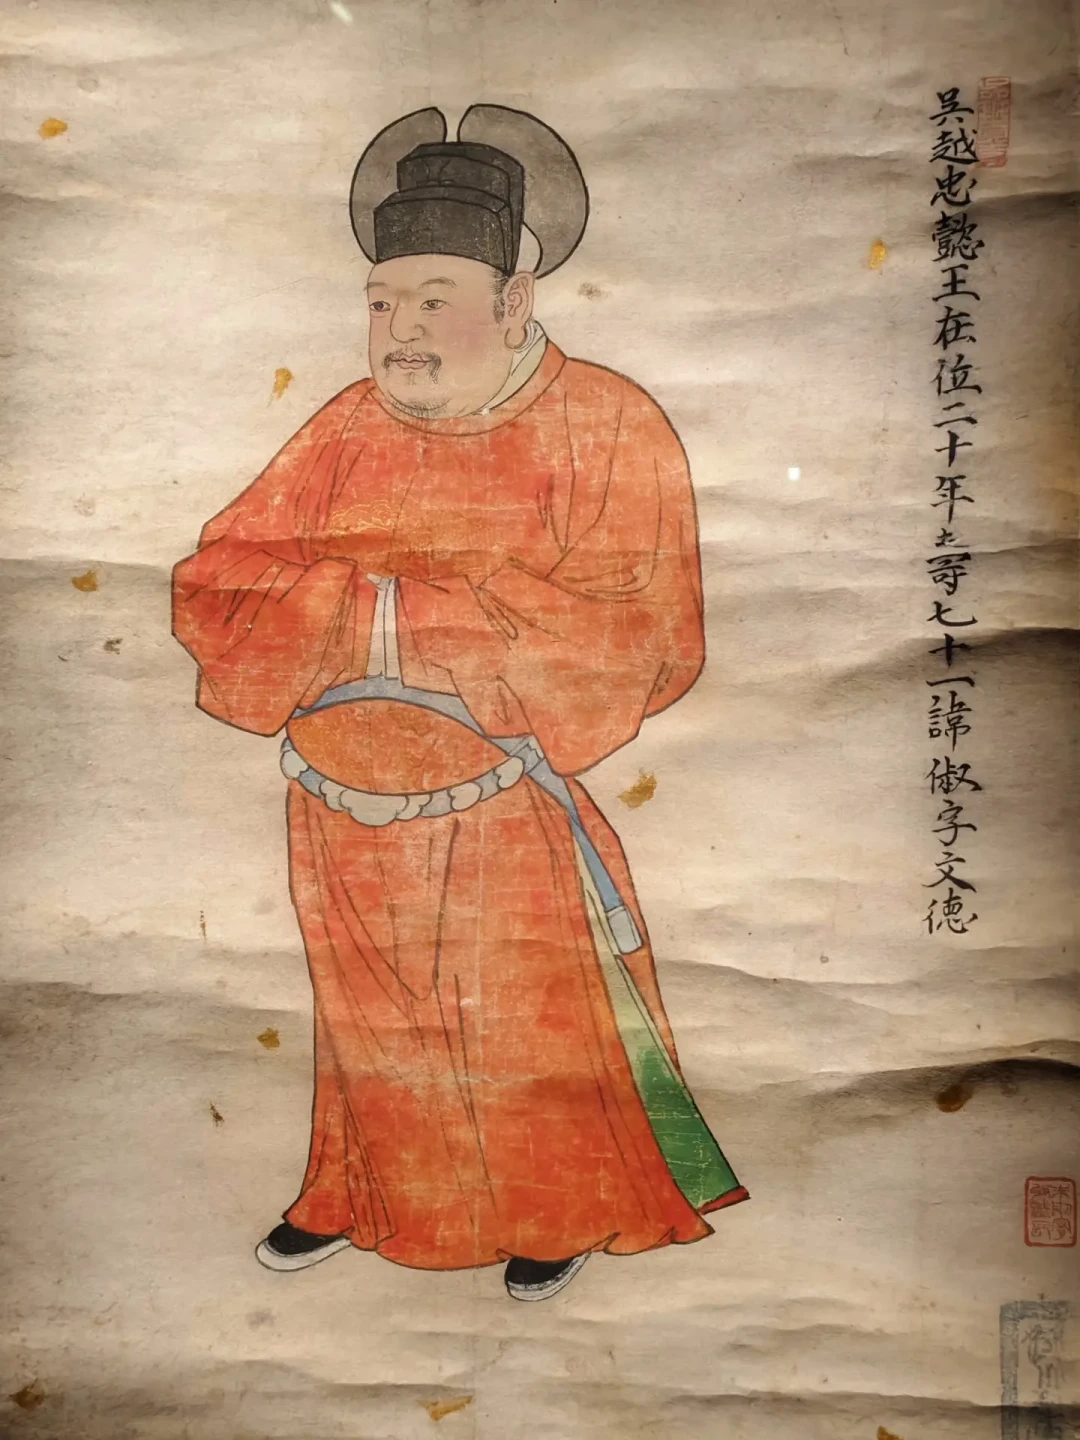 吳越忠懿王在位二十年壽七十一諱俶字文德